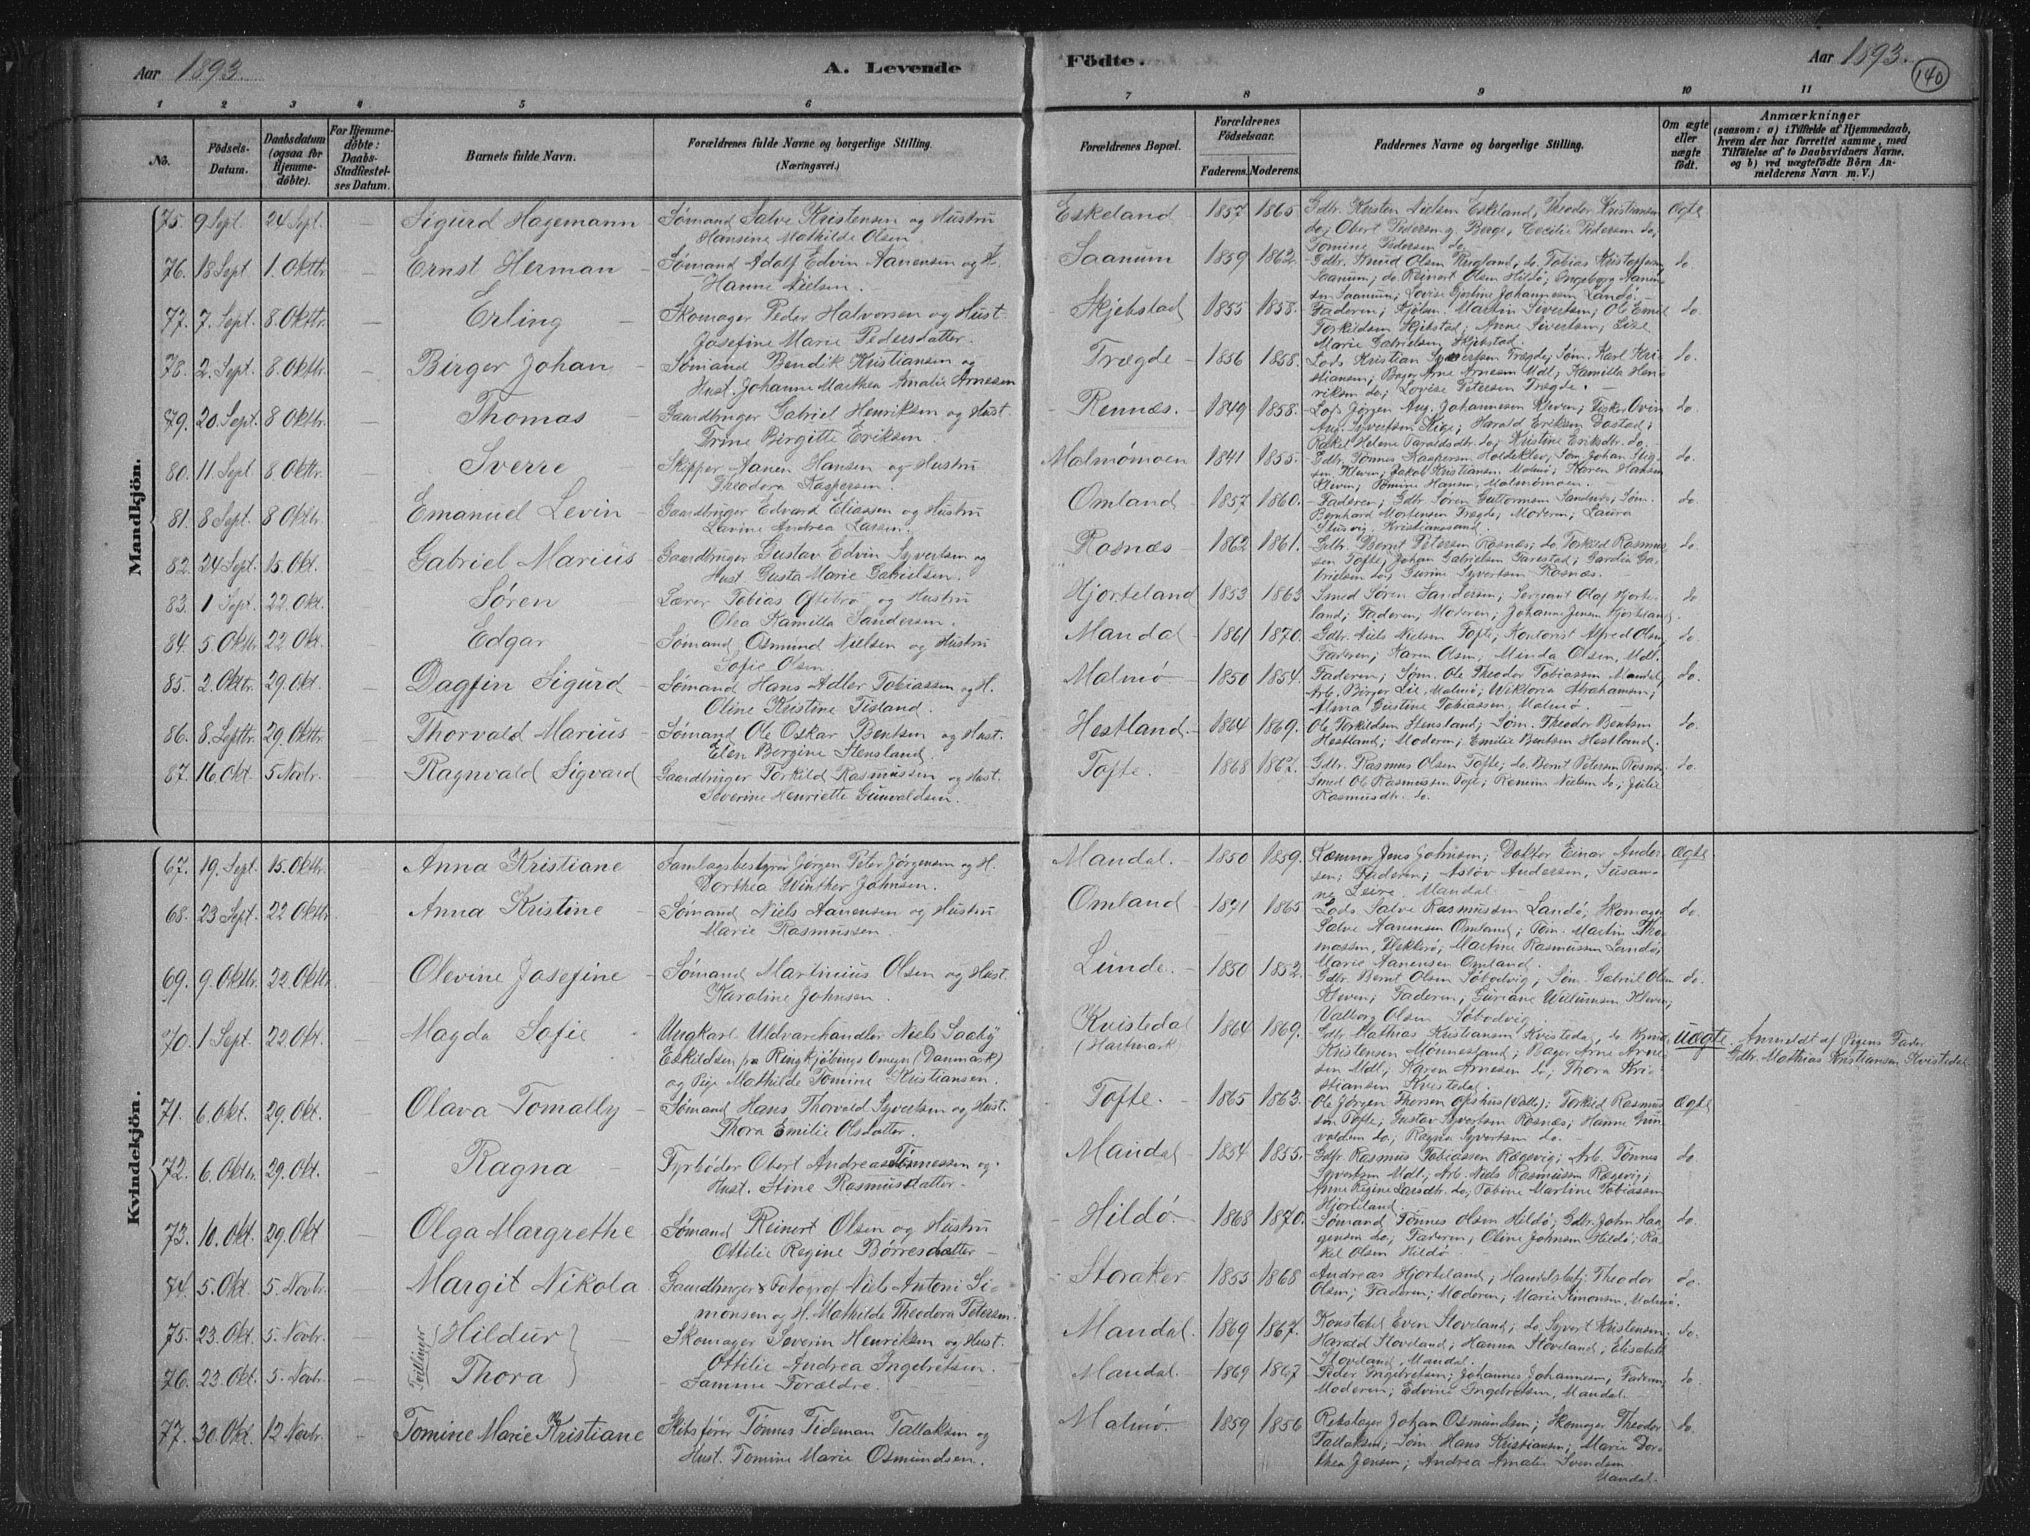 Aar 1893.
A. Levende
Födte.
Aar 1893.
140
1 2 3 4 5 6 7 8 9 10 11
No.
Födsels-Datum.
Daabsdatum (ogsaa for Hjemme-döbte).
For Hjemme-döbte: Daabs-Stadfæstel-ses Datum.
Barnets fulde Navn.
Forældrenes fulde Navne og borgerlige Stilling.
(Næringsvei.)
Forældrenes Bopæl.
Forældrenes Födselsaar.
Faderens. Moderens.
Faddernes Navne og borgerlige Stilling.
Om ægte eller uægte födt.
Anmærkninger
(saasom: a) i Tilfælde af Hjemmedaab,
hvem der har forrettet samme, med
Tilföielse af to Daabsvidners Navne.
og b) ved uægtefödte Börn An-
melderens Navn m. V.)
Mandkjön.
75. 9 Sept. 24 Sept. — Sigurd Hagemann Sømand Salve Kristensen og Hustru Eskeland 1857 1865 Gdbr. Kirsten Nielsen Eskeland, Theodor Kristiansen Ægte
Hansine Mathilde Olsen. do; Obert Pedersen, Berge, Cecilie Pedersen do,
Tomine Pedersen do
76. 18 Sept 1. Oktbr. — Ernst Herman Sømand Adolf Edvin Aanensen og H. Saanum 1859 1862. Gdbr. Knud Olsen, do. Tobias do.
Hanne Nielsen. Saanum; do. Reinert Olsen Hildø; Ingeborg Aanen-
sen Saanum; Lovise Gjertine Johannesen Landø.
77. 7. Sept. 8. Oktbr. — Erling Skomager Peder Halvorsen og Hust. Skjebstad 1855 1858. Faderen; Martin Sivertsen; Ole Emil do.
Josefine Marie Pedersdatter. Torkildsen Skjebstad; Anne Sivertsen; Lise
Marie Gabrielsen Skjebstad.
78. 2. Sept. 8 Oktbr. — Birger Johan Sømand Bendik Kristiansen og Trægde 1856 1858. Lods Kristian Syvertsen Trægde; Søm. Karl Kri- do.
Hust. Johanne Marthea Amalie Arnesen stiansen; Bager Arne Arnesen Mdl; Kamilla Hen-
riksen do; Lovise Petersen Trægde.
79. 20. Sept. 8 Oktbr. — Thomas Gaardbruger Gabriel Henriksen og Hust. Rennæs. 1849 1858. Lods Jörgen Aug. Johannesen Kleven; Fisker do.
Trine Birgitte Eriksen. Aug. Syvertsen; Harald Eriksen;
Rakel Helene Taraldsdtr. do; Kristine Eriksdtr. do.
80. 11. Sept 8 Oktbr. — Sverre Skipper Aanen Hansen og Hustru Malmømoen 1841 1855. Gdbr. Tønnes Kaspersen; Søm. Johan do.
Theodora Kaspersen. Kleven; Jakob Kristiansen, Malmø; Karen Hansen
Kleven; Tomine Hansen, Malmømoen.
81. 8 Sept. 8 Oktbr. — Emanuel Levin Gaardbruger Edvard Eliassen og Hustru Omland 1857 1860. Faderen; Gdbr. Søren Guttormsen; Søm. do
Lavine Andrea Larsen. Bernhard Mortensen Trægde; Moderen; Laura
Kristianssand.
82. 24 Sept. 15. Okt. — Gabriel Marius Gaardbruger Gustav Edvin Syvertsen og Rosnæs 1862 1861. Gdbr. Bernt Petersen Rosnæs; do. Torkild Rasmus- do
Hust. Gusta Marie Gabrielsen. sen Tofte; Johan Gabrielsen; Ga-
brielsen do; Gurine Syvertsen Rosnæs.
83. 1 Sept. 22. Okt. — Søren Lærer Tobias Oftebro og Hustru Hjorteland 1853 1863 Smed Søren Sandersen; Sergeant Olaf Hjorte- do
Olea Kamilla Sandersen. land; Faderen; Moderen; Johanne Jensen Hjorteland
84. 5 Oktbr. 22 Okt. — Edgar Sømand Osmund Nielsen og Hustru Mandal 1861 1870. Gdbr. Niels Nielsen Tofte; Kontorist Alfred Olsen; do.
Sofie Olsen. Faderen; Karen Olsen; Minda Olsen, Mdl.
85. 2. Oktbr. 29 Okt. — Dagfin Sigurd Sømand Hans Adler Tobiassen og H. Malmø 1850 1854. Faderen; Søm. Ole Theodor Tobiassen Mandal do.
Oline Kristine Fisland. Arb. Börger Lie, Malmø; Wiktoria Abrahamsen;
Alma Gustine Tobiassen, Malmø.
86. 8. Septbr. 29. Oktbr. — Thorvald Marius Sømand Ole Oskar Bentsen og Hust. Hestland. 1864 1869. Ole Torkildsen Stensland; Søm. Theodor Bentsen do.
Elen Bergine Stensland. Hestland; Moderen; Emilie Bentsen Hestland.
87. 16 Okt. 5 Novbr. — Ragnvald Sigvard Gaardbruger Torkild Rasmussen og Hust. Tofte. 1868 1862. Gdbr. Rasmus Olsen Tofte; do. Bernt Petersen Rosnæs do.
Severine Henriette Gunvaldsen. Smed Ol. Rasmussen Tofte; Nielsen do; Julie
Rasmusdtr. do.
Kvindekjön.
67. 19. Sept. 15. Oktbr. — Anna Kristiane Samlagsbestyrer Jørgen Peter Jørgensen og H. Mandal. 1850 1859. Kæmner Jens Johnsen; Doktor Einar Ander- Ægte
Dorthea Winther Johnsen. sen; Faderen; Andersen, Susan-
ne Mandal.
68. 23 Sept. 22 Oktbr. — Anna Kristine Sømand Niels Aanensen og Hustru Omland 1871 1865 Lods Salve Rasmussen Landø; Skomager do.
Marie Rasmussen. Salve Aanensen Omland; Søm. Martin Tho-
massen,; Martine Rasmussen Landø;
Marie Aanensen Omland.
69. 9. Oktbr. 22 Oktbr. — Olevine Josefine Sømand Martinius Olsen og Hust. Lunde. 1850 1852. Gdbr. Bernt Olsen; Søm. Gabriel Olsen do.
Karoline Johnsen. Kleven; Faderen; Guriane Willumsen Kleven;
Valborg Olsen
70. 1 Sept. 22 Okt. Magda Sofie Ungkarl Uldvarehandler Niels Saaby Kvistedal 1864 1869. Gdbr. Mathias Kristiansen Kvistedal, do. Knud Uægte Anmeldt af Pigens Fader
Eskildsen fra Ringkjøbings Omegn (Danmark) (Hartmark) Kristensen Mønnesland; Bager Arne Arne- Gdbr. Mathias Kristiansen Kvistedal
og Pige Mathilde Tomine Kristiansen. sen Mdl; Karen Arnesen do; Thora Kri-
stiansen Kvistedal.
71. 6. Okt. 29. Okt. — Olava Tomally Sømand Hans Thorvald Syvertsen og Hust. Tofte. 1865 1863. Ole Jörgen Thorsen (Valle); Torkild Rasmus- Ægte
Thora Emilie Olsdatter. sen Tofte; Gustav Syvertsen Rosnæs; Hanne Gun-
valdsen do; Ragna Syvertsen do.
72. 6. Oktbr. 29. Okt. — Ragna Fyrbøder Obert Andreas Tønnessen og Mandal 1854 1855. Gdbr. Rasmus Tobiassen Røgevig; Arb. Tönnes do.
Hust. Stine Rasmusdatter. Syvertsen Mdl.; Arb. Niels Rasmussen Røgevig;
Anne Regine Larsdtr. do; Tobine Martine Tobiassen
Hjorteland.
73. 10. Okt. 29 Okt — Olga Margrethe Sømand Reinert Olsen og Hustru Hildø. 1868 1870. Sømand Tönnes Olsen Hildø; Gdbr. John Haa- do.
Ottilie Regine Børresdatter — gensen do; Faderen; Oline Johnsen Hildø; Ra-
kel Olsen Hildø.
74. 5. Okt. 5 Novbr. — Margit Nikola Gaardbruger & Fotograf Niels Antoni Si- Storaker 1855 1868 Andreas Hjorteland; Handelsbetj. Theodor do.
monsen og H. Mathilde Theodora Petersen. Olsen; Faderen; Moderen; Marie Simonsen, Malmø.
75. 23. Okt. 5. Novbr. Tvillinger Hildur — Skomager Severin Henriksen og Hust. Mandal. 1869 1867. Konstabel Even Stoveland; do. Syvert Kristensen; do.
Ottilie Andrea Ingebretsen. Harald Stoveland; Hanna Stoveland; Elisabeth
Stoveland, Mandal.
76. 23. Okt. 5. Novbr. Thora — Samme Forældre. — Mandal. 1869 1867 Peder Ingebretsen; Johannes Johannesen; Faderen; do.
Moderen; Edvine Ingebretsen, Mandal.
77. 30. Okt. 12 Novbr. Tomine Marie Kristiane Skibsfører Tønnes Tideman Tallaksen og Malmø. 1859 1856 Rebslager Johan Osmundsen; Skomager Theodor do.
Hust. Tomine Marie Osmundsen. Tallaksen; Søm. Hans Kristiansen; Marie Dor-
thea Jensen; Andrea Amalie Svendsen
Mandal.